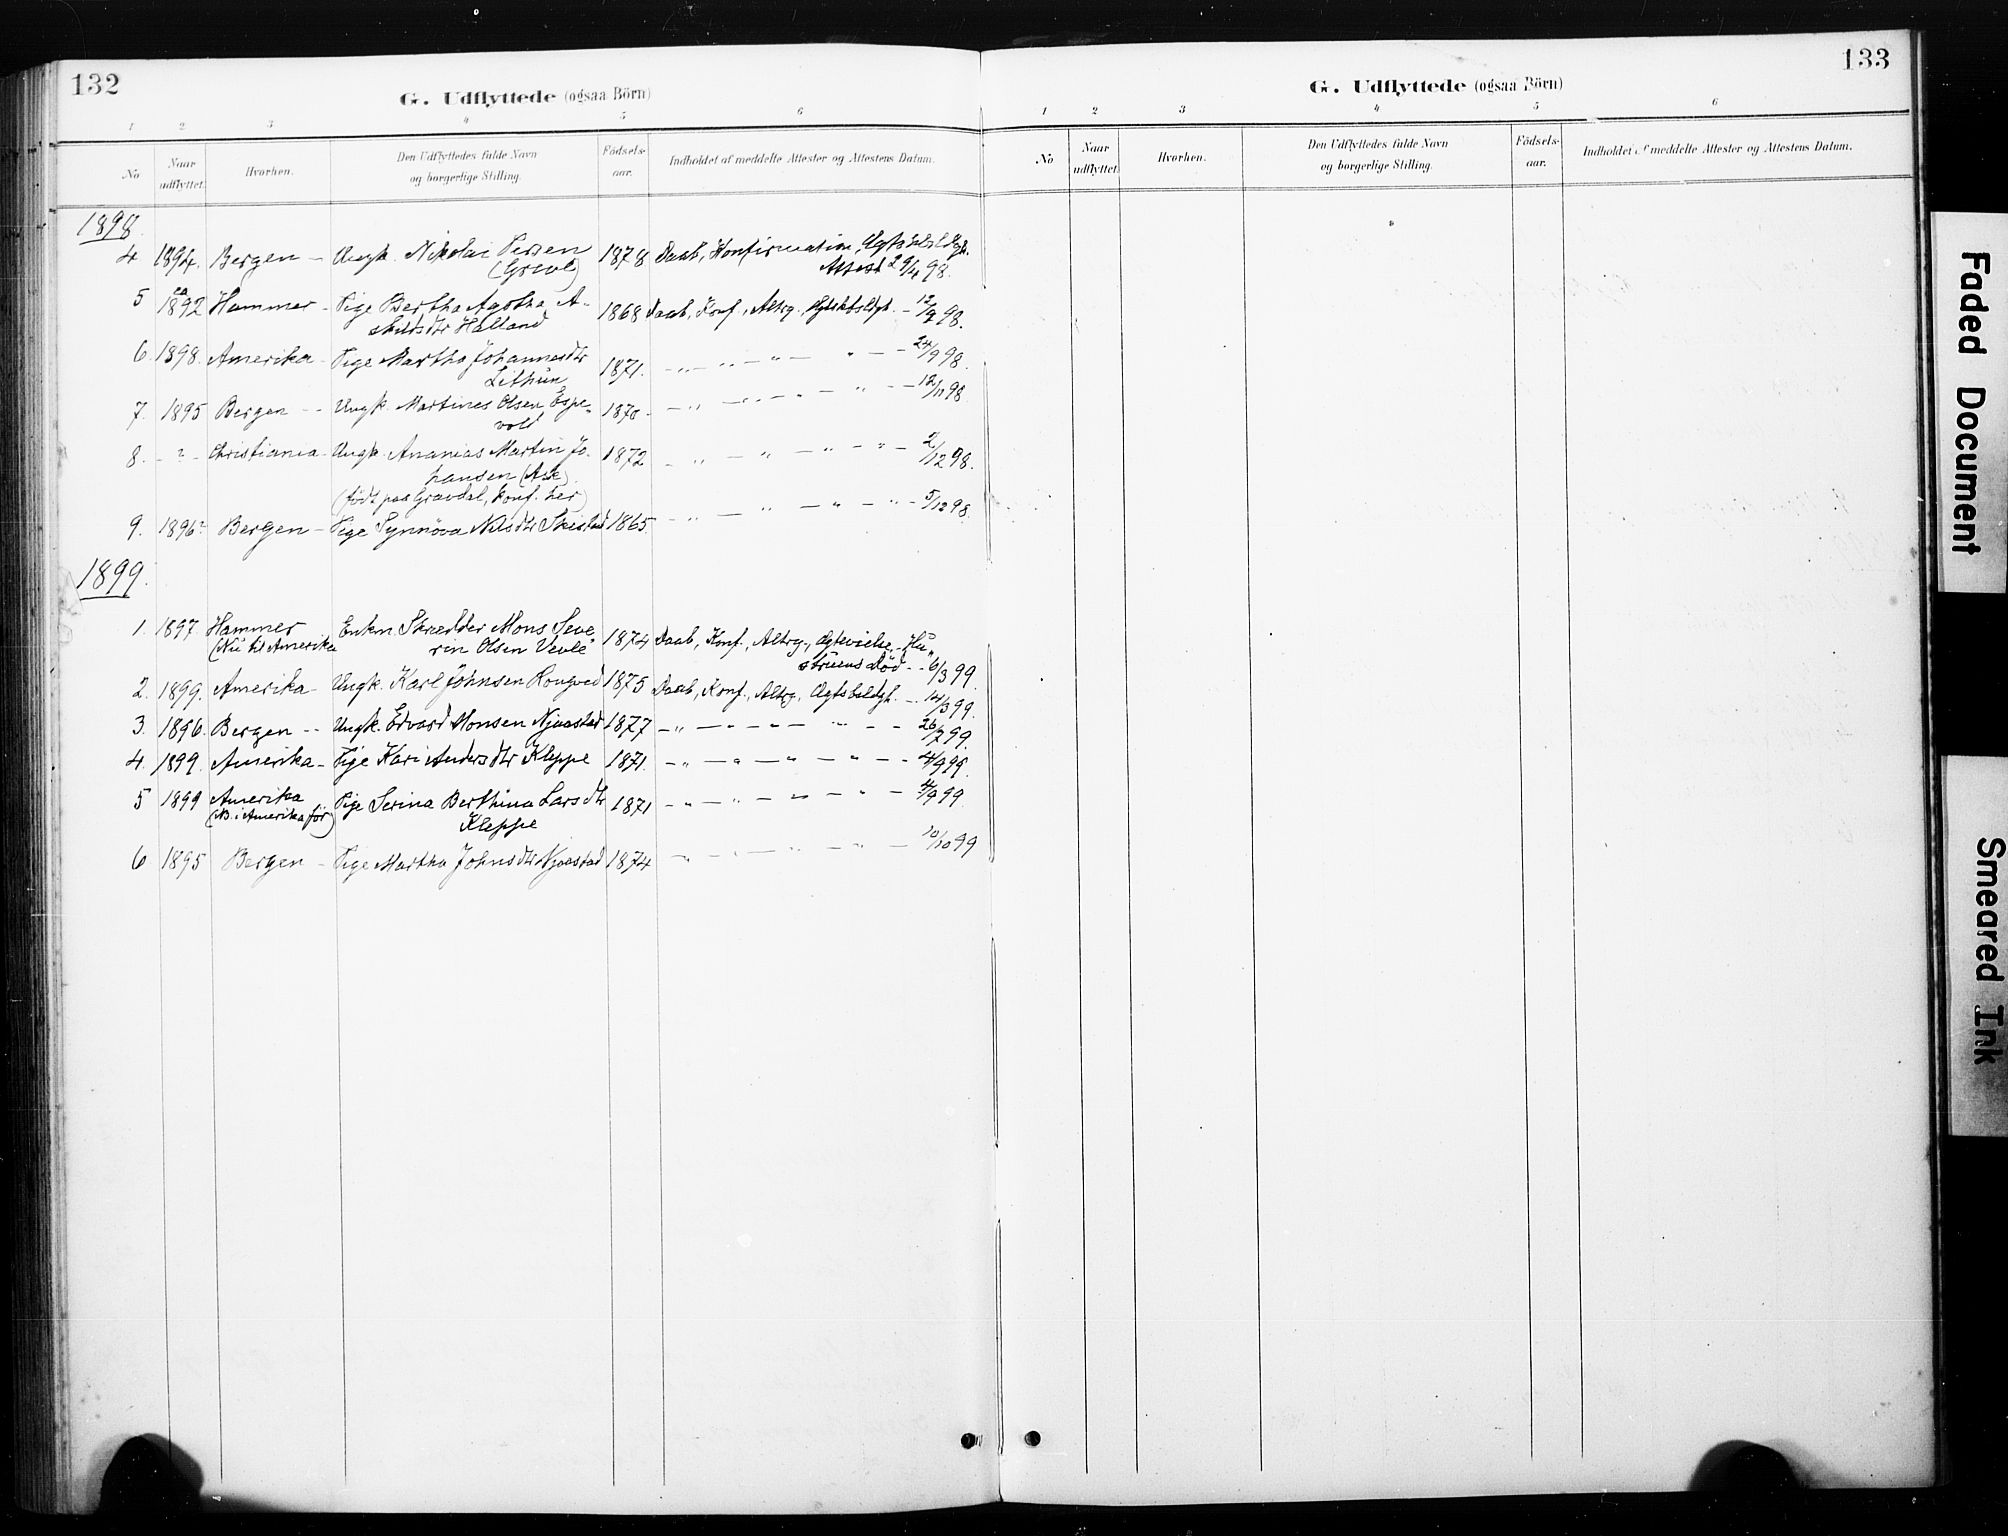 132
G. Udflyttede (ogsaa Börn)
1 2 3 4 5 6
No Naar udflyttet. Hvorhen. Den Udflyttedes fulde Navn og borgerlige Stilling. Födsels-aar. Indholdet af meddelte Attester og Attestens Datum.
1898.
4 1894. Bergen – Ungk. Nikolai Persen 1878 Daab, Konfirmation,
Attest 29/4 98.
5 1892 Hammer – Pige Bertha Agatha A- 1868 Daab, Konf., Altrg., – 12/7 98.
skildsdtr Halland
6 1898. Amerika – Pige Martha Johannesdtr 1871. – " – " – " – " – – 24/9 98.
Lithun
7. 1895 Bergen – – Ungk. Martines Olsen Espe- 1870 – – " – " – " – " – – 12/11 98.
vold
8. – ? – Christiania – Ungk. Ananias Martin Jo- 1872 – " – " – " – " – 2/12 98.
hansen (Ase).
(födt paa Gravdal, konf. her)
9. 1896? Bergen – Pige Synnöva Nilsdtr 1865. – " – " – " – " – 5/12 98.
1899.
1. 1897 Hammer Enkm. Skrædder Mons Seve- 1874 Daab, Konf., Altrg., Ægtevielse, Hu-
(Nu til Amerika rin Olsen Vevle struens Död – – 6/3 99.
2. 1899. Amerika – Ungk. Karl Johnsen Rongved 1875 Daab, Konf., Altrg., – 14/3 99.
3. 1896. Bergen – – Ungk. Edvard Monsen Njaastad 1877 – " – " – " – " – – 26/7 99.
4. 1899. Amerika – Pige Kari Andersdtr Kleppe 1871. – " – " – " – " – 4/9 99.
5 1899 Amerika Pige Serina Berthina Larsdtr 1871 – " – " – " – " – 4/9 99
(N. i Amerika för) Kleppe
6 1895 Bergen – Pige Martha Johnsdtr Njaastad 1874 – " – " – " – " – 10/10 99
133
G. Udflyttede (ogsaa Börn)
1 2 3 4 5 6
No Naar udflyttet. Hvorhen. Den Udflyttedes fulde Navn og borgerlige Stilling. Födsels-aar. Indholdet af meddelte Attester og Attestens Datum.
Faded Document
Smeared Ink